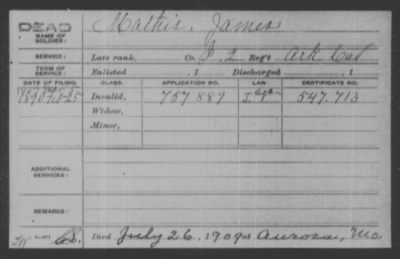 DEAD
NAME OF SOLDIER: Mathis, James
SERVICE: Late rank, Co. B, 2 Reg't Ark Cav
TERM OF SERVICE: Enlisted , 1 Discharged , 1
DATE OF FILING. CLASS. APPLICATION NO. LAW. CERTIFICATE NO.
1907
1890 Invalid, 757 889 547.713
Widow,
Minor,
ADDITIONAL SERVICES:
REMARKS:
Died July 26, 1909 at Aurora, Mo.